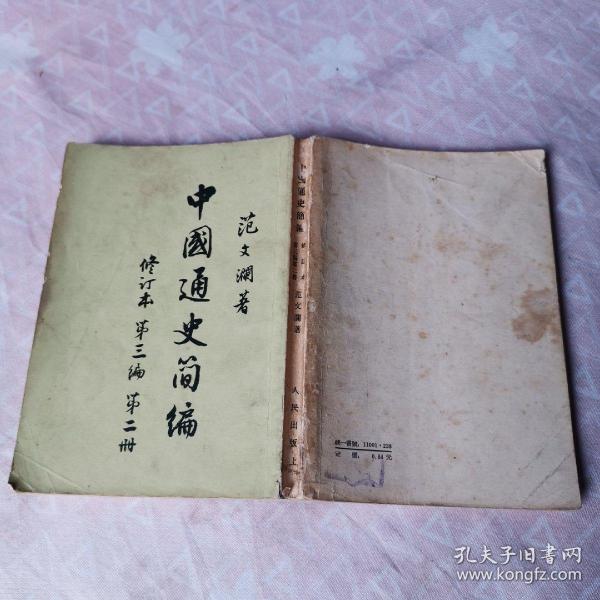 范文瀾著
中國通史简编
修订本 第三编 第二册
中國通史簡編
范文瀾著
人民出版社
統一書號：11001·228
定價：0.84元
孔夫子旧书网
www.kongfz.com